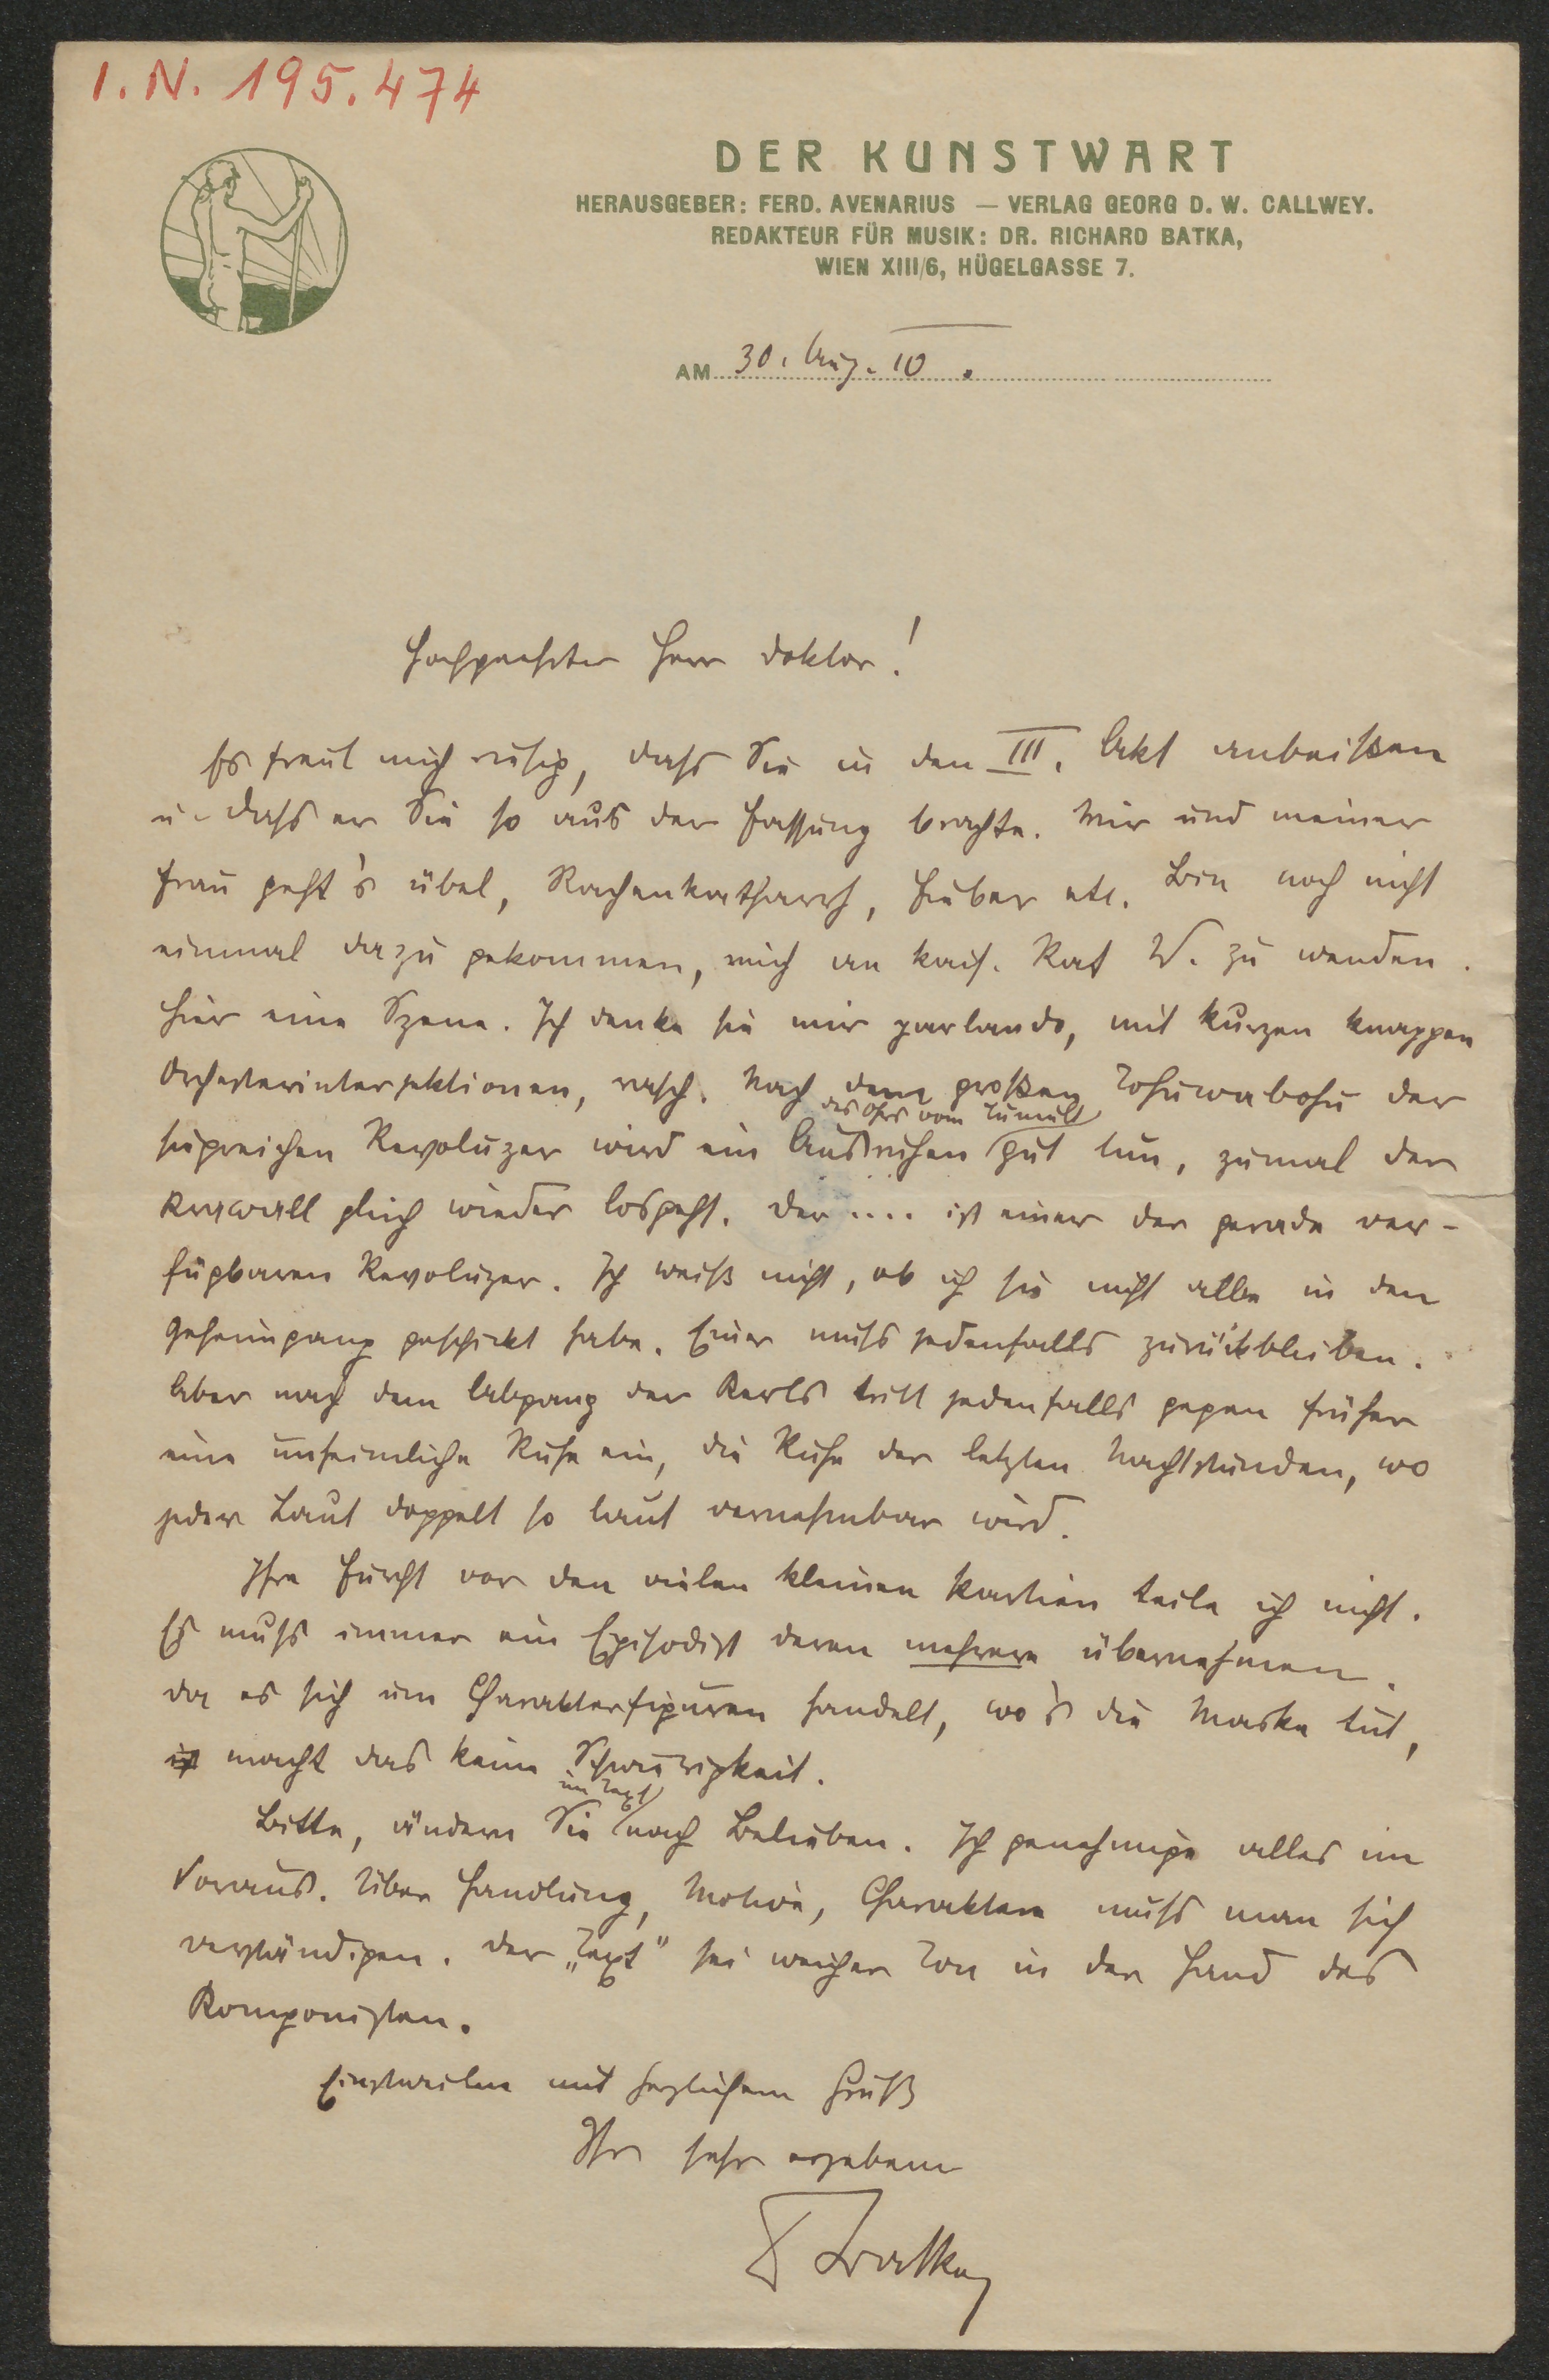 I. N. 195.474
DER KUNSTWART
HERAUSGEBER: FERD. AVENARIUS — VERLAG GEORG D. W. CALLWEY.
REDAKTEUR FÜR MUSIK: DR. RICHARD BATKA,
WIEN XIII/6, HÜGELGASSE 7.
AM 30. Aug. 10.
Hochgeehrter Herr Doktor!
Es freut mich riesig, dass Sie in den III. Akt anbeißen
u. dass er Sie so aus der Fassung brachte. Mir und meiner
Frau geht's übel, Rachenkatharrh, Fieber etc. Bin noch nicht
einmal dazu gekommen, mich an kais. Rat W. zu wenden.
Hier eine Szene. Ich denke sie mir parlando, mit kurzen knappen
Orchesterinterjektionen, rasch. Nach dem großen Tohuwabohu der
des Ohrs vom Tumult
siegreichen Revoluzer wird ein Ausruhen gut tun, zumal der
Krawall gleich wieder losgeht. Der .... ist einer der gerade ver-
fügbaren Revoluzer. Ich weiß nicht, ob ich sie nicht alle in den
Geheimgang geschickt habe. Einer muss jedenfalls zurückbleiben.
Aber nach dem Abgang der Kerls tritt jedenfalls gegen früher
eine unheimliche Ruhe ein, die Ruhe der letzten Nachtstunden, wo
jeder Laut doppelt so laut vernehmbar wird.
Ihre Furcht vor den vielen kleinen Partien teile ich nicht.
Es muss immer ein Episodist deren mehrere übernehmen.
Da es sich um Charakterfiguren handelt, wo's die Maske tut,
macht das keine Schwierigkeit.
im Text
Bitte, ändern Sie nach Belieben. Ich genehmige alles im
Voraus. Über Handlung, Motive, Charaktere muss man sich
verständigen. Der „Text" sei weicher Ton in der Hand des
Komponisten.
Einstweilen mit herzlichem Gruß
Ihr sehr ergebener
Batka